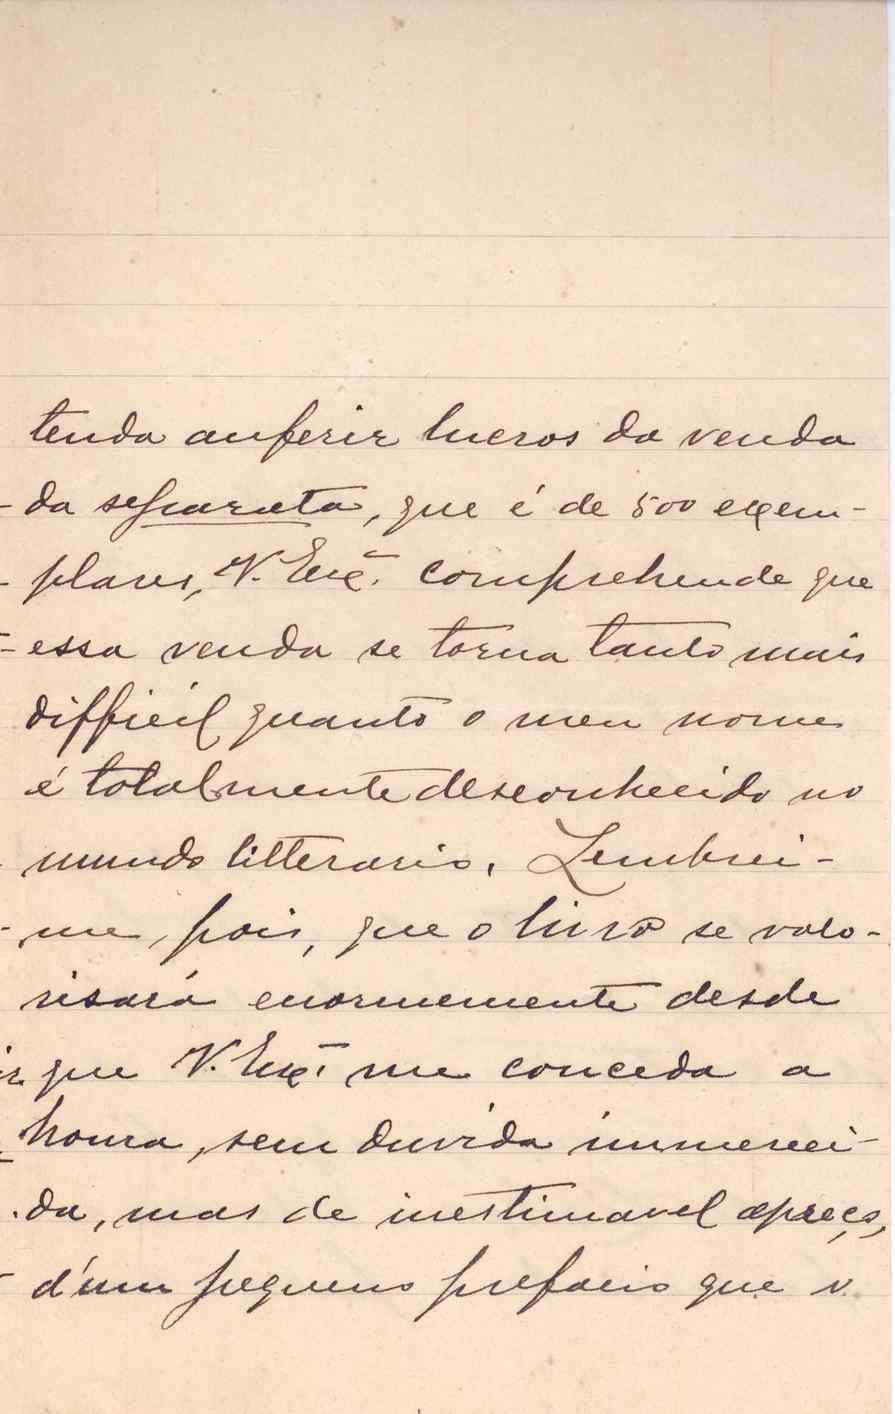 tenda auferir lucros da venda
da separata, que é de 500 exem-
plares, V. Exª. comprehende que
essa venda se torna tanto mais
difficil quanto o meu nome
é totalmente desconhecido no
mundo litterario. Lembrei-
me, pois, que o livro se valo-
risará enormemente desde
que V. Exª. me conceda a
honra, sem duvida immereci-
da, mas de inestimavel apreço,
d'um pequeno prefacio que o